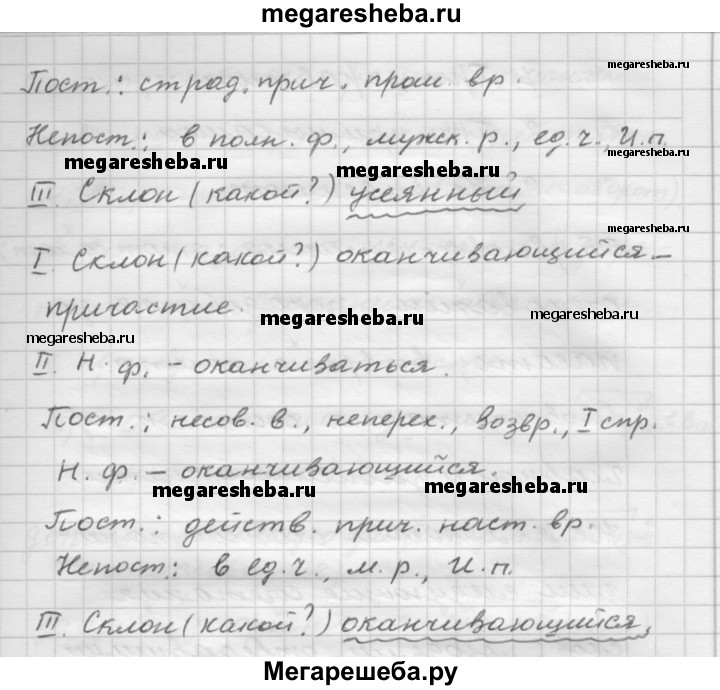 megaresheba.ru
Пост.: страд. прич. прош. вр.
megaresheba.ru
Непост.: в полн. ф., мужск. р., ед. ч., И.п.
megaresheba.ru
megaresheba.ru
megaresheba.ru
III. Склон (какой?) усеянный
megaresheba.ru
I. Склон (какой?) оканчивающийся –
причастие.
megaresheba.ru
megaresheba.ru
megaresheba.ru
II. Н. ф. – оканчиваться.
Пост.: несов. в., неперех., возвр., I спр.
Н. ф. – оканчивающийся.
megaresheba.ru
megaresheba.ru
Пост.: действ. прич. наст. вр.
Непост.: в ед. ч., м. р., И. п.
III. Склон (какой?) оканчивающийся,
Мегарешеба.ру